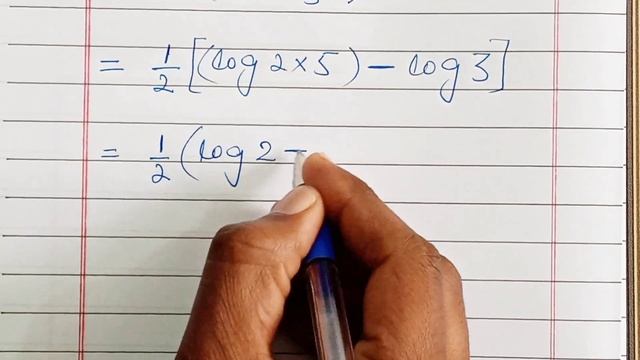 = 1/2 [(log 2 × 5) − log 3]
= 1/2 (log 2 −